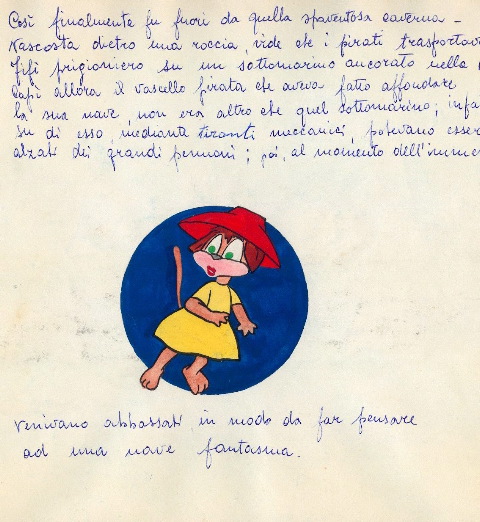 Così finalmente fu fuori da quella spaventosa caverna -
Nascosta dietro una roccia, vide che i pirati trasportav
Fifì prigioniero su un sottomarino ancorato nella
Capì allora il vascello pirata che aveva fatto affondare
la sua nave, non era altro che quel sottomarino; infa
su di esso, mediante tiranti meccanici, potevano esser
alzati dei grandi pennoni; poi, al momento dell'immer
venivano abbassati in modo da far pensare
ad una nave fantasma.